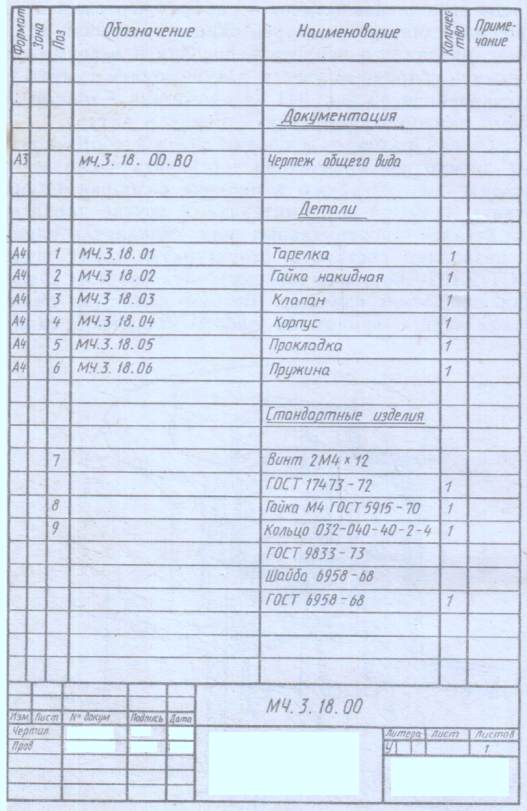 Формат Зона Поз Обозначение Наименование Количес-тво Приме-чание
Документация
А3 МЧ.3.18.00.ВО Чертеж общего вида
Детали
А4 1 МЧ.3.18.01 Тарелка 1
А4 2 МЧ.3.18.02 Гайка накидная 1
А4 3 МЧ.3.18.03 Клапан 1
А4 4 МЧ.3.18.04 Корпус 1
А4 5 МЧ.3.18.05 Прокладка 1
А4 6 МЧ.3.18.06 Пружина 1
Стандартные изделия
7 Винт 2М4×12
ГОСТ 17473-72 1
8 Гайка М4 ГОСТ 5915-70 1
9 Кольцо 032-040-40-2-4 1
ГОСТ 9833-73
Шайба 6958-68
ГОСТ 6958-68 1
МЧ.3.18.00
Изм Лист № докум Подпись Дата
Чертил
Пров
Литера Лист Листов
У 1